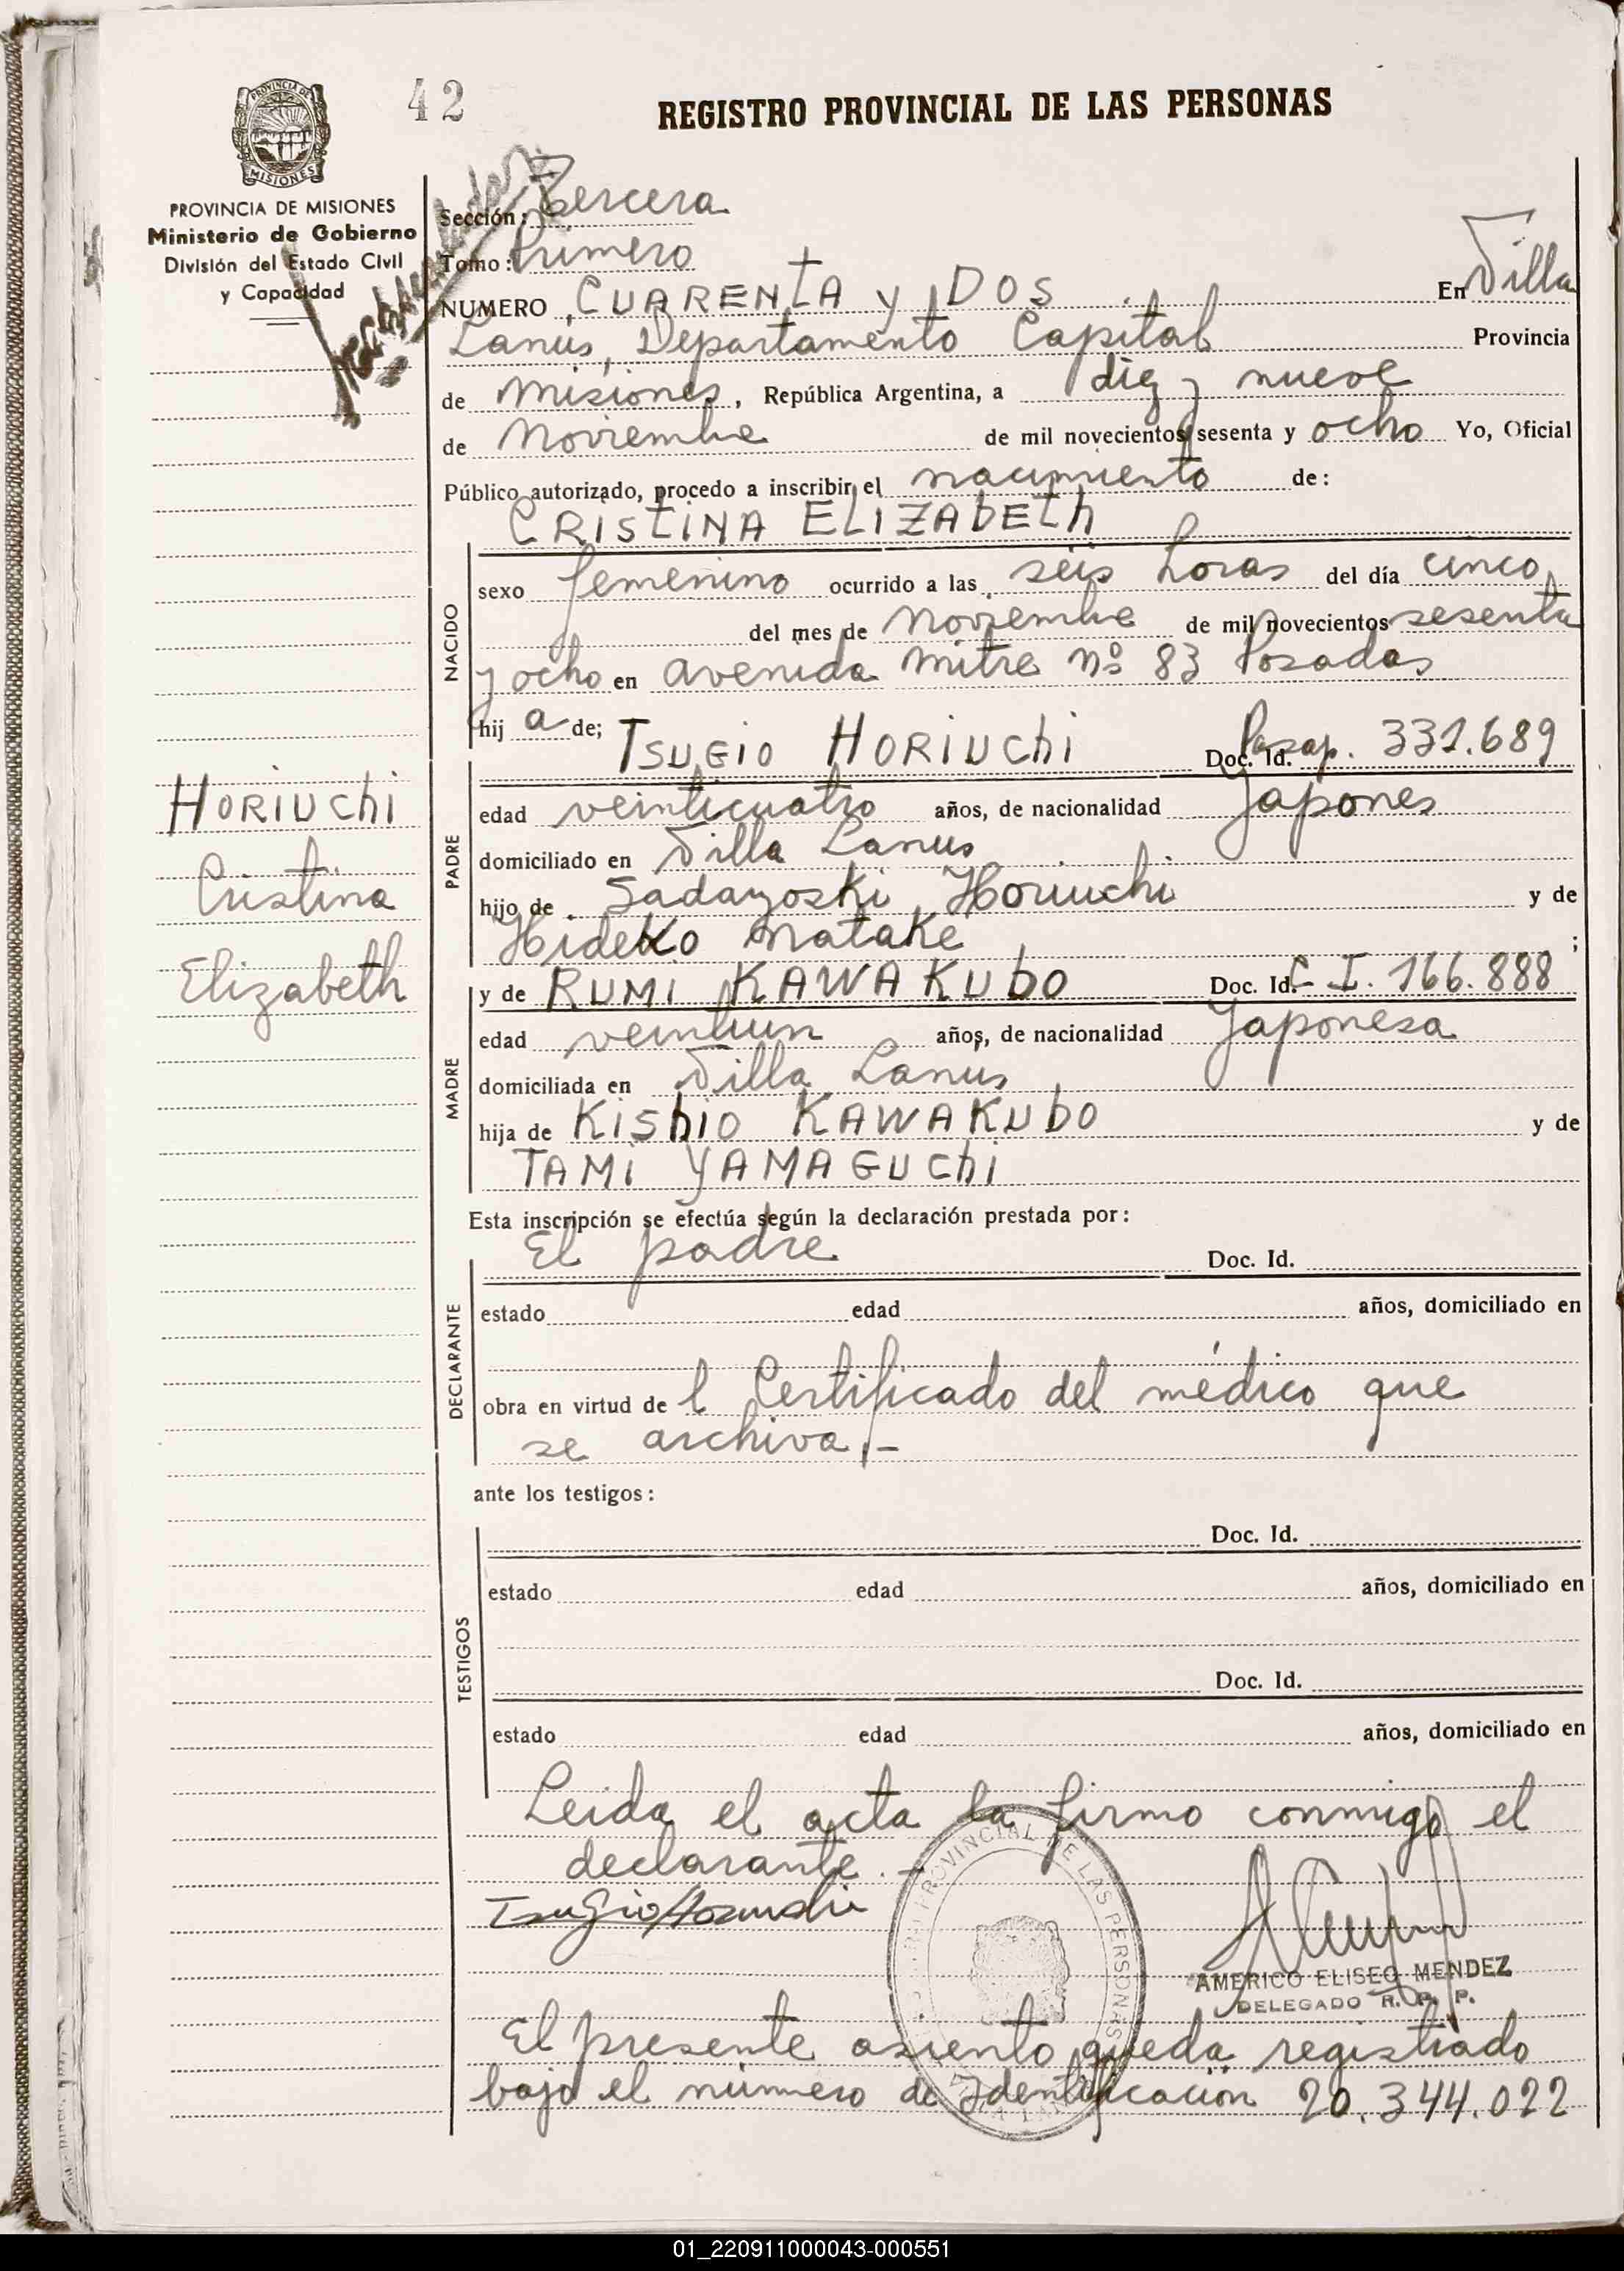 42
REGISTRO PROVINCIAL DE LAS PERSONAS
PROVINCIA DE MISIONES
PROVINCIA DE MISIONES
Ministerio de Gobierno
División del Estado Civil
y Capacidad
Sección: Tercera
Tomo: Primero
NUMERO CUARENTA y DOS. En Villa
Lanús, Departamento Capital Provincia
de Misiones, República Argentina, a diez y nueve
de Noviembre de mil novecientos sesenta y ocho Yo, Oficial
Público autorizado, procedo a inscribir el nacimiento de:
CRISTINA ELIZAbETh
NACIDO
sexo femenino ocurrido a las seis horas del día cinco
del mes de Noviembre de mil novecientos sesenta
y ocho en avenida Mitre Nº 83 Posadas
hij a de;
PADRE
TSUGIO HORIUChi Doc. Id. Pasap. 331.689
edad veinticuatro años, de nacionalidad Japones
domiciliado en Villa Lanus
hijo de Sadayoski Horiuchi y de
Hideko Matake ;
HORIUChi
Cristina
Elizabeth
MADRE
y de RUMI KAWAKUbO Doc. Id. C. I. 166.888
edad veintiun años, de nacionalidad Japonesa
domiciliada en Villa Lanus
hija de KIShIO KAWAKUbO y de
TAMI YAMAGUChi
Esta inscripción se efectúa según la declaración prestada por:
DECLARANTE
El padre Doc. Id.
estado edad años, domiciliado en
obra en virtud de l Certificado del médico que
se archiva.-
ante los testigos:
TESTIGOS
Doc. Id.
estado edad años, domiciliado en
Doc. Id.
estado edad años, domiciliado en
Leida el acta la firmo conmigo el
declarante.-
Tsugio Horiuchi
PROVINCIAL DE LAS PERSONAS
AMERICO ELISEO MENDEZ
DELEGADO R. P. P.
El presente asiento queda registrado
bajo el número de Identificación 20.344.022
01_220911000043-000551